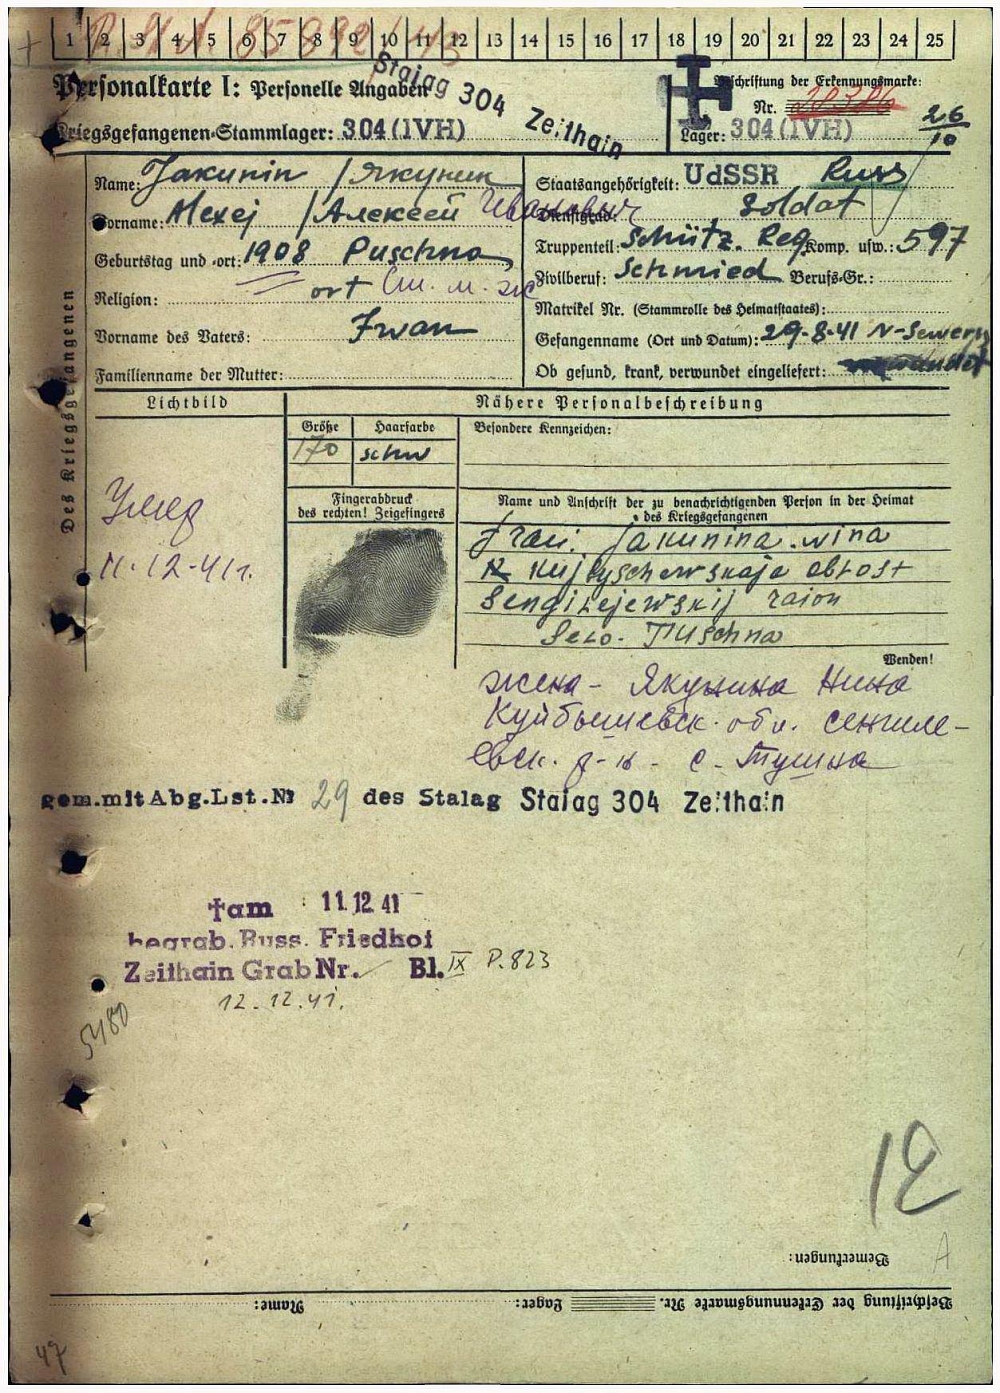 1 2 3 4 5 6 7 8 9 10 11 12 13 14 15 16 17 18 19 20 21 22 23 24 25
Personalkarte I: Personelle Angaben
Stalag 304 Zeithain
Beschriftung der Erkennungsmarke:
Nr.
Kriegsgefangenen-Stammlager: 304 (IVH)
Lager: 304 (IVH)
26/10
Des Kriegsgefangenen
Name: Jakunin /Якунин
Vorname: Alexej /Алексей Иванович
Geburtstag und -ort: 1908 Puschna
ort См. м. ж
Religion:
Vorname des Vaters: Iwan
Familienname der Mutter:
Staatsangehörigkeit: UdSSR Russ
Dienstgrad: Soldat
Truppenteil: Schütz. Reg. Komp. usw.: 597
Zivilberuf: Schmied Berufs-Gr.:
Matrikel Nr. (Stammrolle des Heimatstaates):
Gefangenname (Ort und Datum): 29-8-41 N-Sewersk
Ob gesund, krank, verwundet eingeliefert:
Lichtbild
Nähere Personalbeschreibung
Größe Haarfarbe
170 schw
Besondere Kennzeichen:
Fingerabdruck
des rechten! Zeigefingers
Name und Anschrift der zu benachrichtigenden Person in der Heimat
des Kriegsgefangenen
Frau: Jakunina.wina
Kujbyschewskaje oblost
Sengilejewskij raion
Selo. Tuschna
Умер
11-12-41г.
Wenden!
жена - Якунина Нина
Куйбышевск. обл. Сенгиле-
евск. р-н - с. Тушна
gem.mit Abg.Lst.№ 29 des Stalag Stalag 304 Zeithain
†am 11.12.41
begrab. Russ. Friedhof
Zeithain Grab Nr. Bl. IX P. 823
12.12.41.
5480
12
A
Bemerkungen:
Beschriftung der Erkennungsmarke Nr. Lager: Name:
47